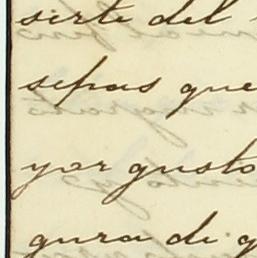 sirte del
sepas que
yor gusto
gura di g